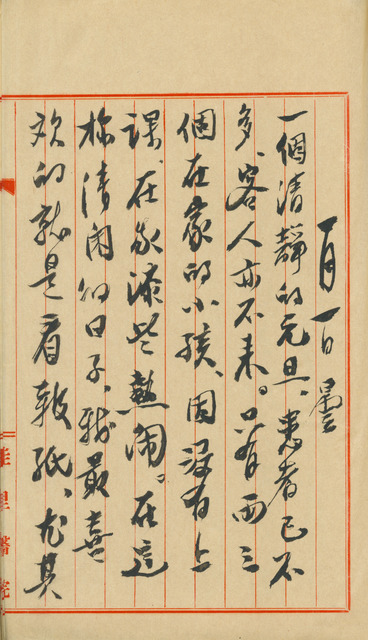 一月一日 曇
一個清靜的元旦、患者已不
多、客人亦不来。只有両三
個在家的小孩、因沒有上
課、在家添些熱鬧。在這
称清閑的日子、我最喜
欢的就是看報紙、尤其
佳里醫院